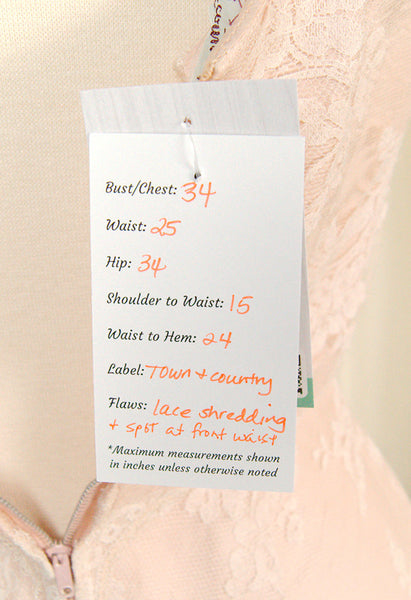 Bust/Chest: 34
Waist: 25
Hip: 34
Shoulder to Waist: 15
Waist to Hem: 24
Label: Town + country
Flaws: lace shredding
+ spot at front waist
*Maximum measurements shown
in inches unless otherwise noted